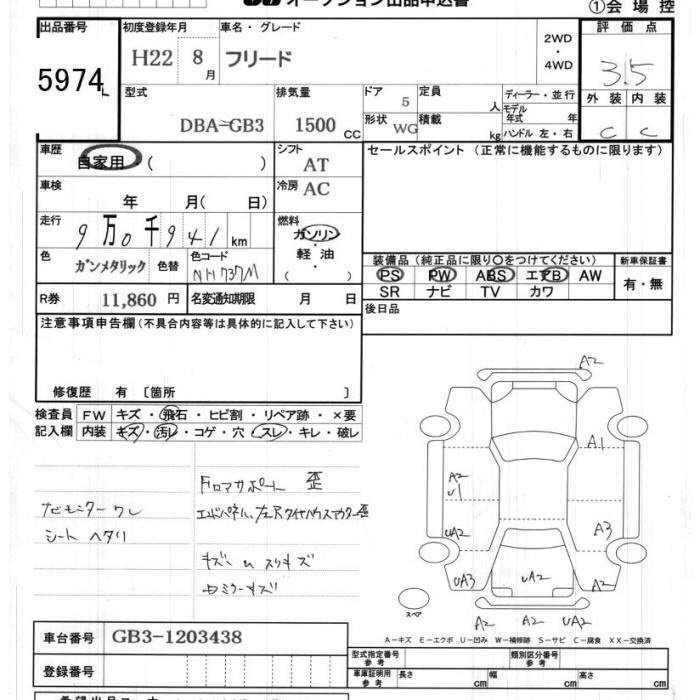 オークション出品申込書
①会場控
出品番号 初度登録年月 車名・グレード 評価点
5974 H22 8月 フリード 2WD・4WD 3.5
型式 排気量 ドア 定員 ディーラー・並行 外装 内装
DBA-GB3 1500cc 5 人 モデル年式 年 C C
形状 WG 積載 kg ハンドル 左・右
車歴 シフト セールスポイント (正常に機能するものに限ります)
自家用 ( ) AT
車検 冷房
年 月( 日) AC
走行 燃料
9万0千941km ガソリン・軽油・( )
色 色替 色コード 装備品 (純正品に限り○をつけてください) 新車保証書
ガンメタリック NH737M PS PW ABS エアB AW 有・無
SR ナビ TV カワ
R券 11,860円 名変通知期限 月 日 後日品
注意事項申告欄 (不具合内容等は具体的に記入して下さい)
修復歴 有 〔箇所 〕
検査員記入欄 FW キズ・飛石・ヒビ割・リペア跡・×要
内装 キズ・汚レ・コゲ・穴・スレ・キレ・破レ
ナビモニターワレ
シートヘタリ
Fロアサポート 歪
キズ
A2
A1
A2
U1
UA2
A3
UA3
UA2
A2
A2 A2 UA2
スペア
A-キズ E-エクボ U-凹み W-補修跡 S-サビ C-腐食 XX-交換済
車台番号 GB3-1203438
登録番号
型式指定番号 参考 類別区分番号 参考
車庫証明用 参考 長さ cm 幅 cm 高さ cm